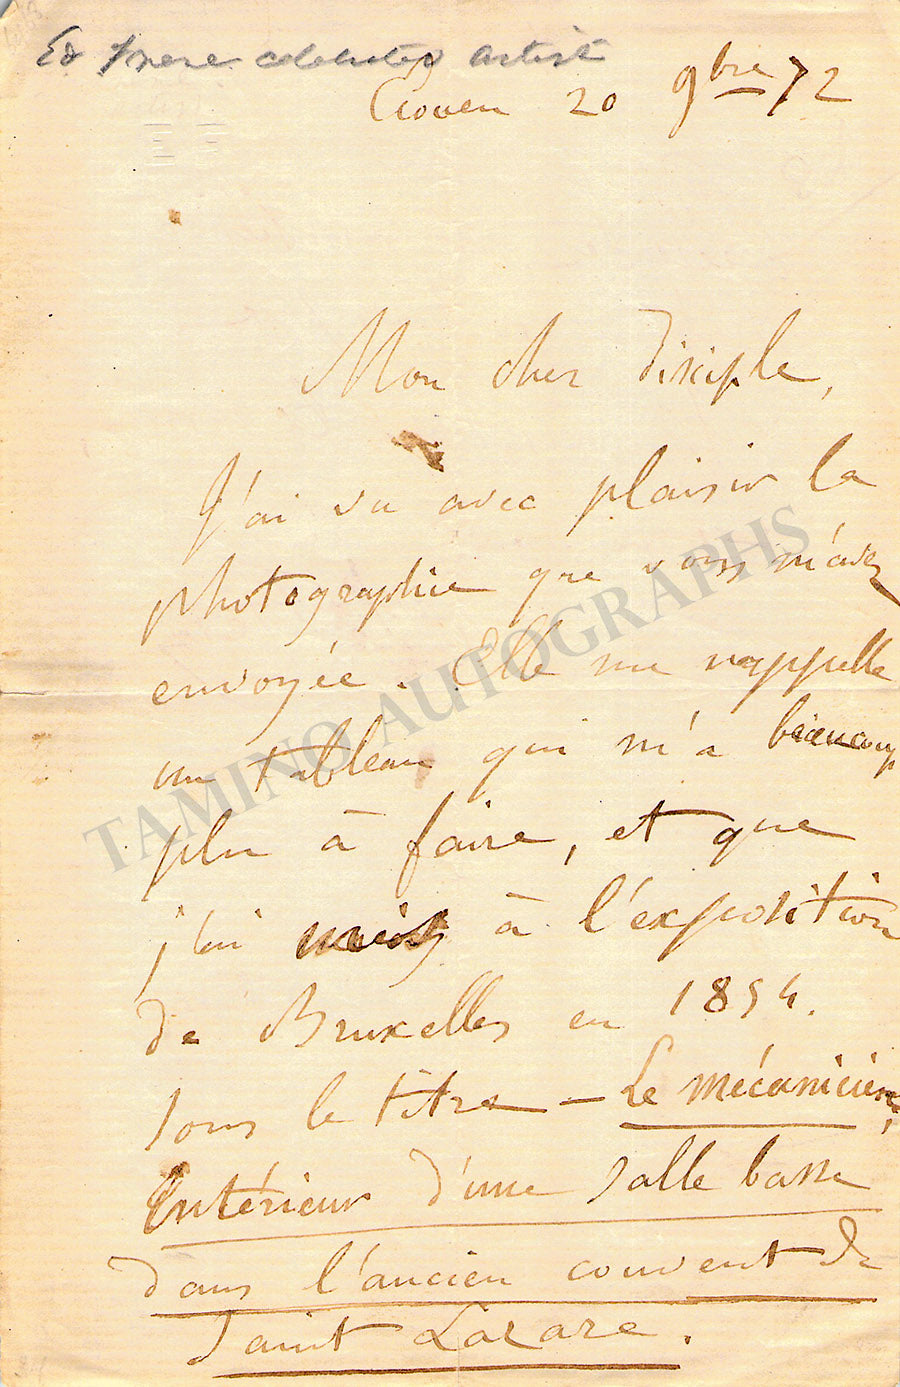 Ed frere celebrated artist
Ecouen 20 9bre 72
Mon cher disciple,
J'ai vu avec plaisir la
photographie que vous m'avez
envoyée. Elle me rappelle
un tableau qui m'a beaucoup
plu à faire, et que
j'ai mis à l'exposition
de Bruxelles en 1854.
sous le titre – Le mécanicien,
Intérieur d'une salle basse
dans l'ancien couvent de
Saint Lazare.
TAMINO AUTOGRAPHS